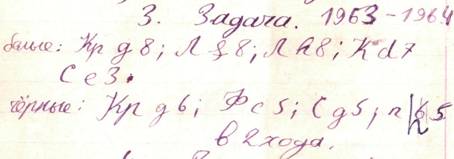 3. Задача. 1963-1964
белые: Кр g8; Л f8; Л h8; К d7
С e3.
чёрные: Кр g6; Ф c5; С g5; п h5
в 2 хода.